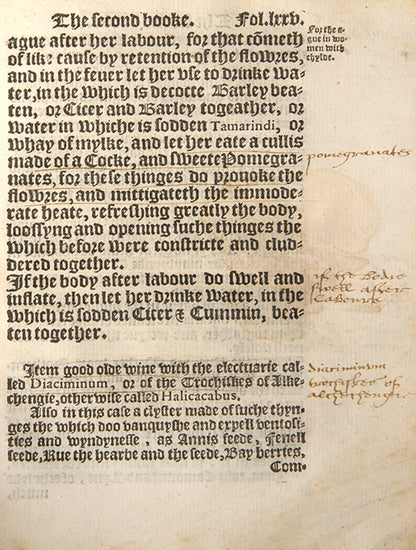 The second booke. Fol.lxxv.
ague after her labour, for that cõmeth
of like cause by retention of the flowres,
and in the feuer let her vse to drinke wa-
ter, in the which is decocte Barley bea-
ten, or Cicer and Barley togeather, or
water in whiche is sodden Tamarindi, or
whay of mylke, and let her eate a cullis
made of a Cocke, and sweete Pomegra-
nates, for these thinges do prouoke the
flowres, and mitigateth the immode-
rate heate, refreshing greatly the body,
loossyng and opening suche thinges the
which before were constricte and clud-
dered together.
If the body after labour do swell and
inflate, then let her drinke water, in the
which is sodden Cicer & Cummin, bea-
ten together.
Item good olde wine with the electuarie cal-
led Diaciminum, or of the Trochiskes of Alke-
chengie, other wise called Halicacabus.
Also in this case a clyster made of suche thyn-
ges the which doo vanquyshe and expell ventosi-
ties and wyndynesse, as Annis seede, Fenell
seede, Rue the hearbe and the seede, Bay berries,
Com-
For the a-
gue in wo-
men with
chylde.
pomegranates
if the bodie
swell after
Laboure
diaciminum
trochiskes of